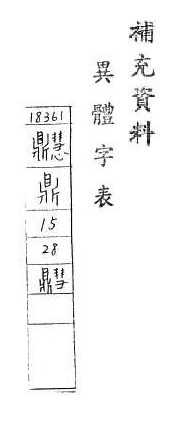 補充資料
異體字表
18361
鼎
15
28
䵻